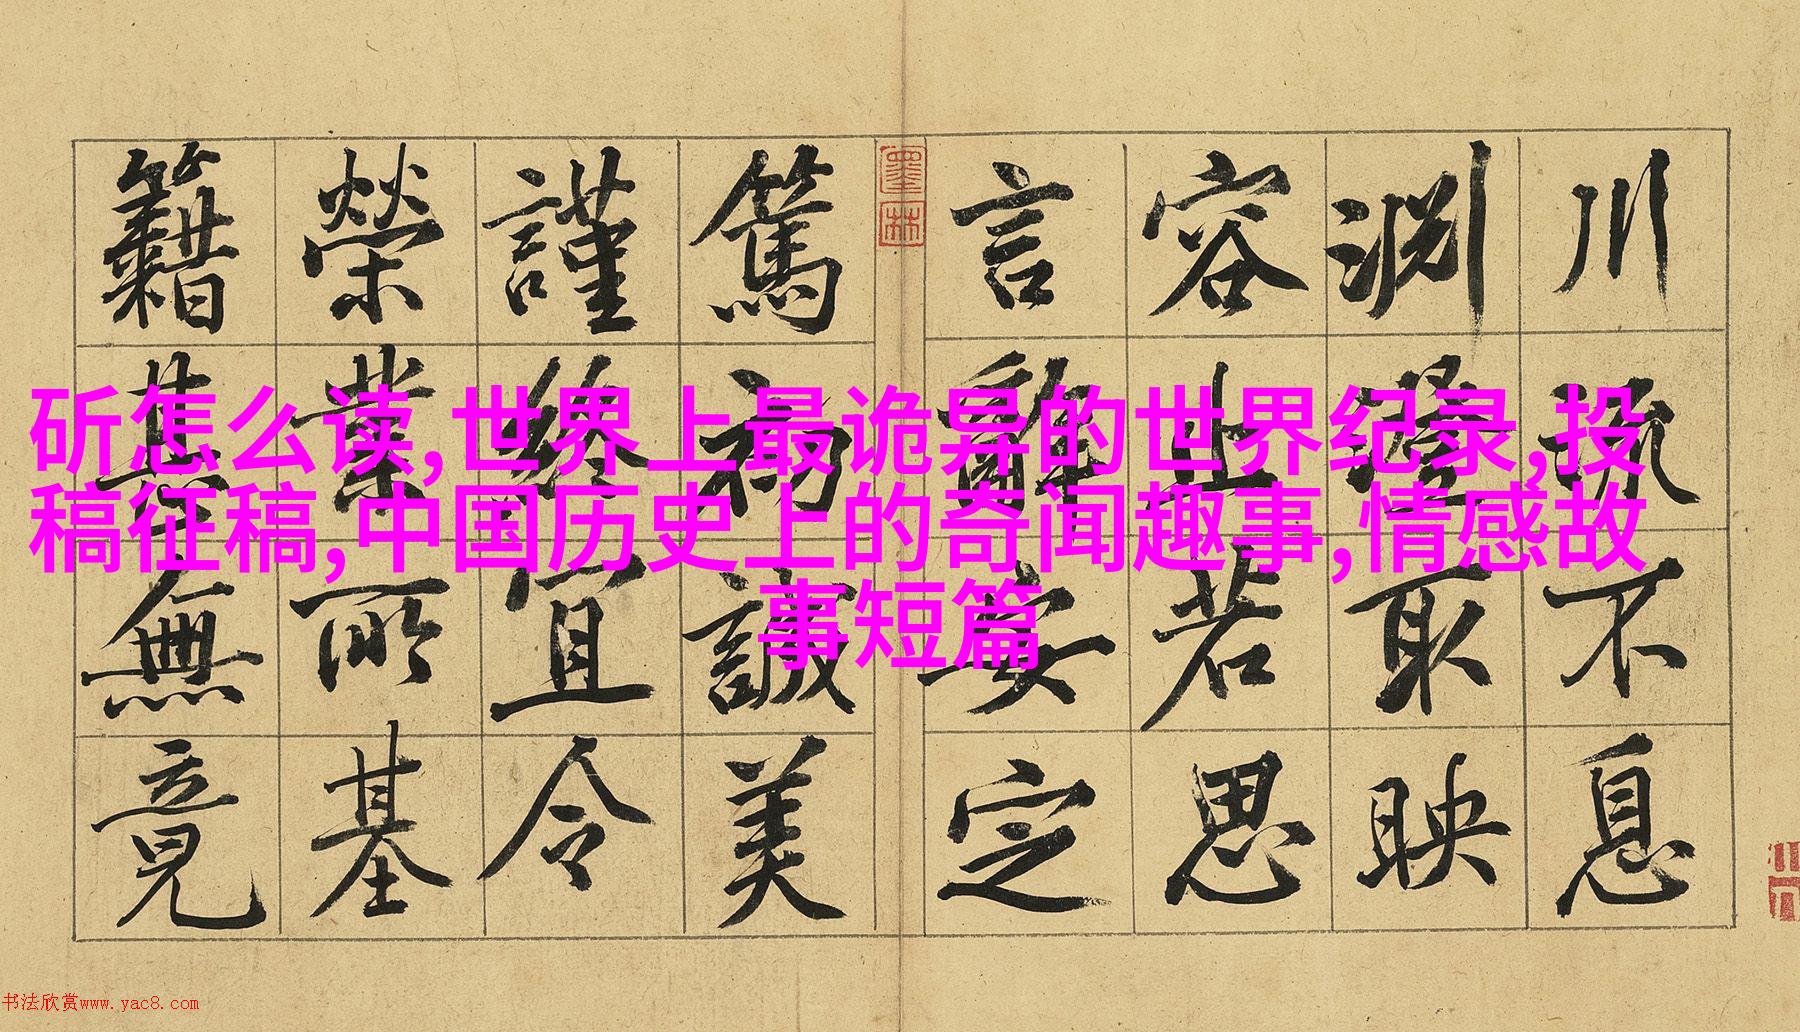 斫怎么读,世界上最诡异的世界纪录,投
稿征稿,中国历史上的奇闻趣事,情感故
事短篇
川流不息
淵澄取映
容止若思
言辭安定
墨林
篤初誠美
謹終宜令
榮業所基
籍甚無竟
书法欣赏www.yac8.com